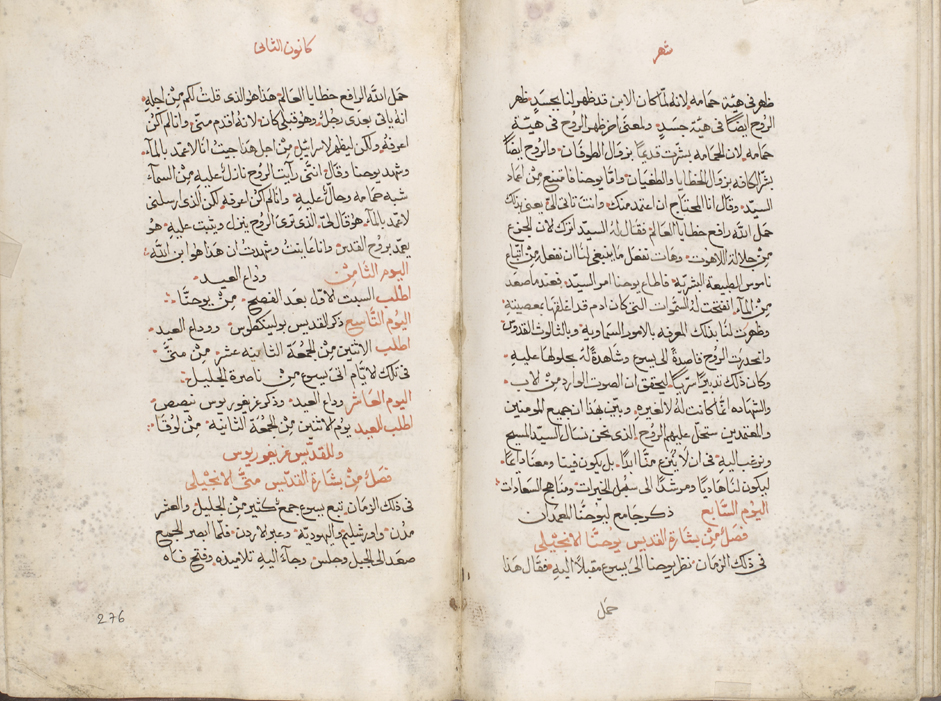 شهر
ظهر في هيئة حمامه لانه لمّا كان الابن قد ظهر لنا بجسدٍ ظهر
الروح ايضًا في هيئة جسدٍ وبمعنى اخر ظهر الروح في هيئة
حمامه لان الحمامه بشّرت قديمًا بزوال الطوفان والروح ايضًا
بشّر الكافه بزوال الخطايا والطغيان وامّا يوحنا فامتنع من اعماد
السيّد وقال انا المحتاج ان اعتمد منك وانت تاتي اليّ يعني بذلك
حمل الله رافع خطايا العالم فقال لهُ السيّد اترك لان الجزع
من جلالة اللاهوت وهات نفعل ما ينبغي لنا ان نفعل من اتباع
ناموس الطبيعة البشرية فاطاع يوحنا امر السيّد فعندما صعد
من المآء انفتحت لهُ السموات التي كان ادم قد اغلقها بمعصيتهِ
وظهرت لنا بذلك المعرفه بالامور السماوية وبالثالوث القدوس
وانحدرت الروح قاصدةً الى يسوع وشاهدةً لهُ بحلولها عليهِ
وكان ذلك تدبيرًا سريًا ليتحقق ان الصوت الوارد من الاب
والشهاده انمّا كانت لهُ لا لغيره وبتيقن بهذا ان جميع المومنين
والمعتمدين ستحلّ عليهم الروح الذي نحن نسال السيّد المسيح
ونرغب اليهِ في ان لا ينزع منّا ابدًا بل يكون فينا ومعنا دايمًا
ليكون لنا هاديًا ومرشدًا الى سبل الخيرات ومناهج السعادات
اليوم السابع ذكر جامع ليوحنا المعمدان
فصلٌ من بشارة القديس يوحنّا الانجيلي
في ذلك الزمان نظر يوحنا الى يسوع مقبلًا اليهِ فقال هذا
حمل
كانون الثاني
حمل الله الرافع خطايا العالم هذا هو الذي قلت لكم من اجلهِ
انه ياتي بعدي رجلٌ وهو قبلي كان لانهُ اقدم منّي وانا لم اكن
اعرفهُ ولكن ليظهر لاسرائيل من اجل هذا جيت انا لاعمد بالمآء
وشهد يوحنا وقال انني رآيت الروح نازلٌ عليهِ من السمآء
شبه حمامه وحالٌ عليهِ وانا لم اكن اعرفهِ لكن الذي ارسلني
لاعمد بالمآء هو قال لي الذي ترى الروح ينزل ويثبت عليهِ هو
يعمّد بروح القدس وانا عاينت وشهدت ان هذا هو ابن الله
اليوم الثامن وداع العيد
اطلب السبت الاول بعد الفصح من يوحنّا
اليوم التاسع ذكر القديس بوليكطوس ووداع العيد
اطلب الاثنين من الجمعة الثانيه عشر من متّى
في تلك الايّام اتى يسوع من ناصرة الجليل
اليوم العاشر وداع العيد وذكر غريغوريوس نيصص
اطلب للعيد يوم الاثنين من الجمعة الثانية من لوقا
وللقدّيس غريغوريوس
فصلٌ من بشارة القديس متّى الانجيلي
في ذلك الزمان تبع يسوع جمعٌ كثيرٌ من الجليل والعشر
مدن واورشليم واليهوديّة وعبر الاردن فلّما ابصر الجميع
صعد الى الجبل وجلس وجآء اليهِ تلاميذه وفتح فاه
276